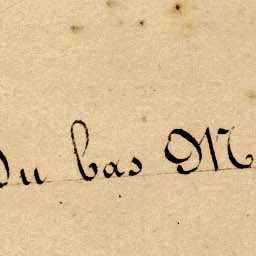 du bas M